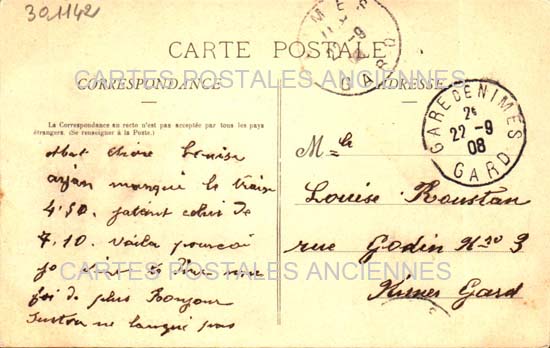 301142
CARTE POSTALE
CORRESPONDANCE
ADRESSE
CARTES POSTALES ANCIENNES
La Correspondance au recto n'est pas acceptée par tous les pays
étrangers. (Se renseigner à la Poste.)
NIMES
22-9
GARD
GARE DE NIMES
2e
22-9
08
GARD
Mlle
Louise Roustan
rue Godin No 3
Nimes Gard
chère Louise
ayan manqué le train
4.50. jatent celui de
7.10. voila pourcoi
dire une
foi de plus Bonjour
ne langui pas
CARTES POSTALES ANCIENNES